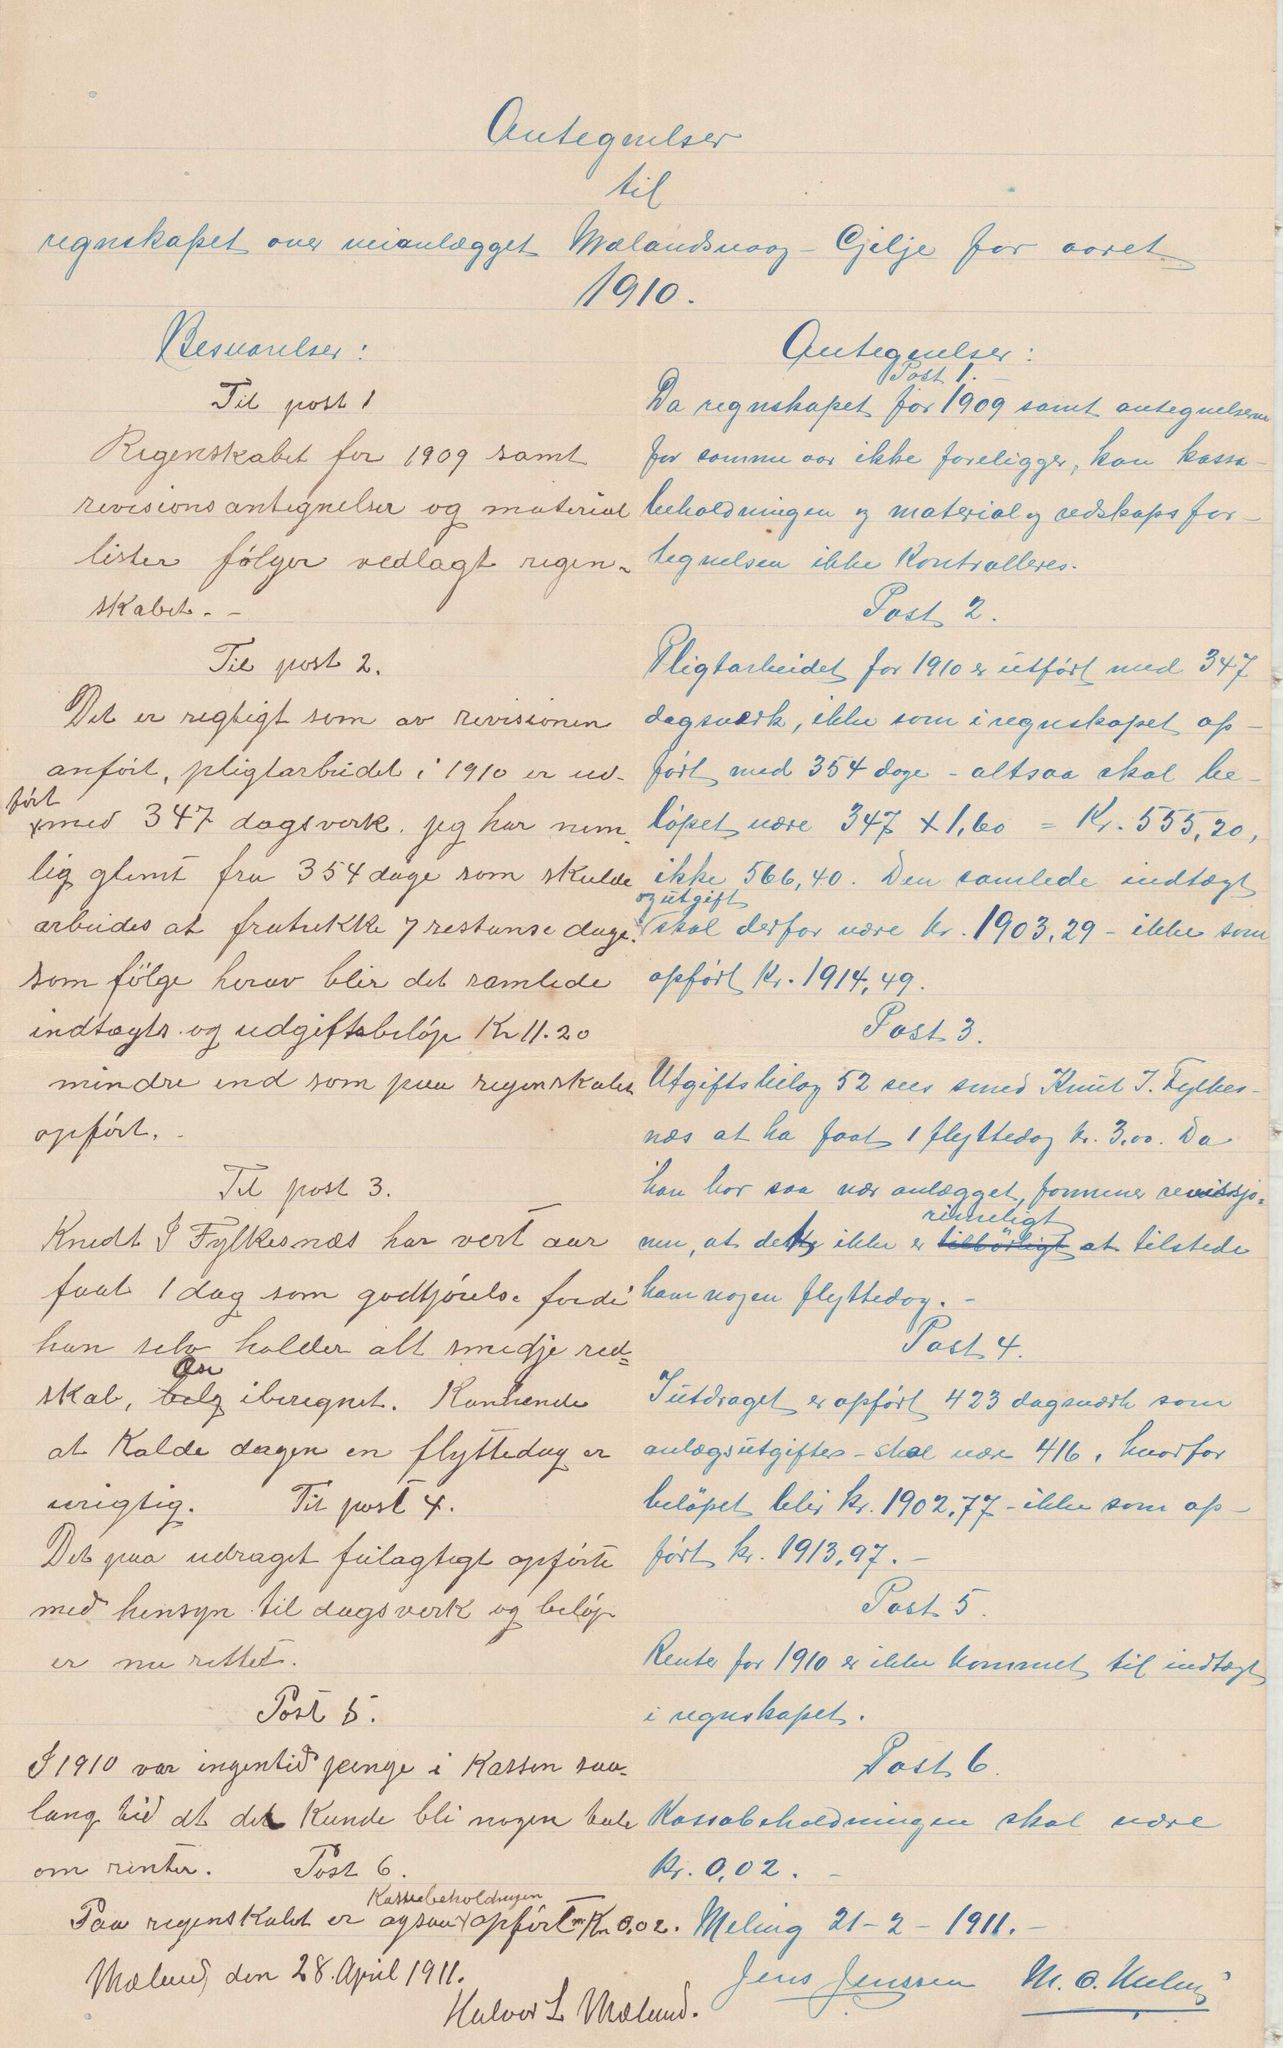 Antegnelser
til
regnskapet over veianlægget Mælandsvaag - Gjilje for aaret
1910.
Besvarelser:
Til post 1
Regenskabet for 1909 samt
revisionsantegnelser og material
lister følger vedlagt regen-
skabet. -
Til post 2.
Det er regtigt som av revisionen
anført, pligtarbeidet i 1910 er ud-
ført
med 347 dagsverk. jeg har nem-
lig glemt fra 354 dage som skulde
arbeides at fratrekke 7 restanse dage.
som følge herav blir det samlede
indtægts og udgiftsbeløp Kr 11.20
mindre end som paa regenskabet
opført. -
Til post 3.
Knudt I Fylkesnæs har vert aar
faat 1 dag som godtjørelse fordi
han selv holder alt smedje red=
skab, iberegnet. Kanhende
at Kalde dagen en flyttedag er
urigtig. Til post 4.
Det paa udraget feilagtigt opførte
med hensyn til dagsverk og beløp
er nu rettet.
Post 5.
I 1910 var ingentid penge i Kassen saa-
lang tid at det Kunde bli nogen tale
om renter. Post 6.
Kassebeholdngen
Paa regenskabet er ogsaa opført Kr 0,02.
Mæland, den 28. April 1911.
Halvor L Mæland.
Antegnelser:
Post 1. -
Da regnskapet for 1909 samt antegnelserne
for samme aar ikke foreligger, kan kassa-
beholdningen og material og redskapsfor-
tegnelsen ikke kontrolleres.
Post 2.
Pligtarbeidet for 1910 er utført med 347
dagsverk, ikke som i regnskapet op-
ført med 354 dage - altsaa skal be-
løpet være 347 x 1,60 = Kr. 555,20,
ikke 566,40. Den samlede indtægt
og utgift
skal derfor være kr. 1903,29 - ikke som
opført Kr. 1914,49.
Post 3.
Utgiftsbilag 52 sees smed Knut I. Fylkes-
næs at ha faat 1 flyttedag kr. 3,00. Da
han bor saa nær anlægget, formener revissjo-
rimeligt
nen, at dette ikke er tilbørligt at tilstede
ham nogen flyttedag. -
Post 4.
I utdraget er opført 423 dagsverk som
anlægsutgifter - skal være 416, hvorfor
beløpet blir kr. 1902,77 - ikke som op-
ført kr. 1913,97. -
Post 5.
Renter for 1910 er ikke kommet til indtægt
i regnskapet.
Post 6.
Kassabeholdningen skal være
kr. 0,02. -
Meling 21-2-1911. -
Jens Jenssen M. O.